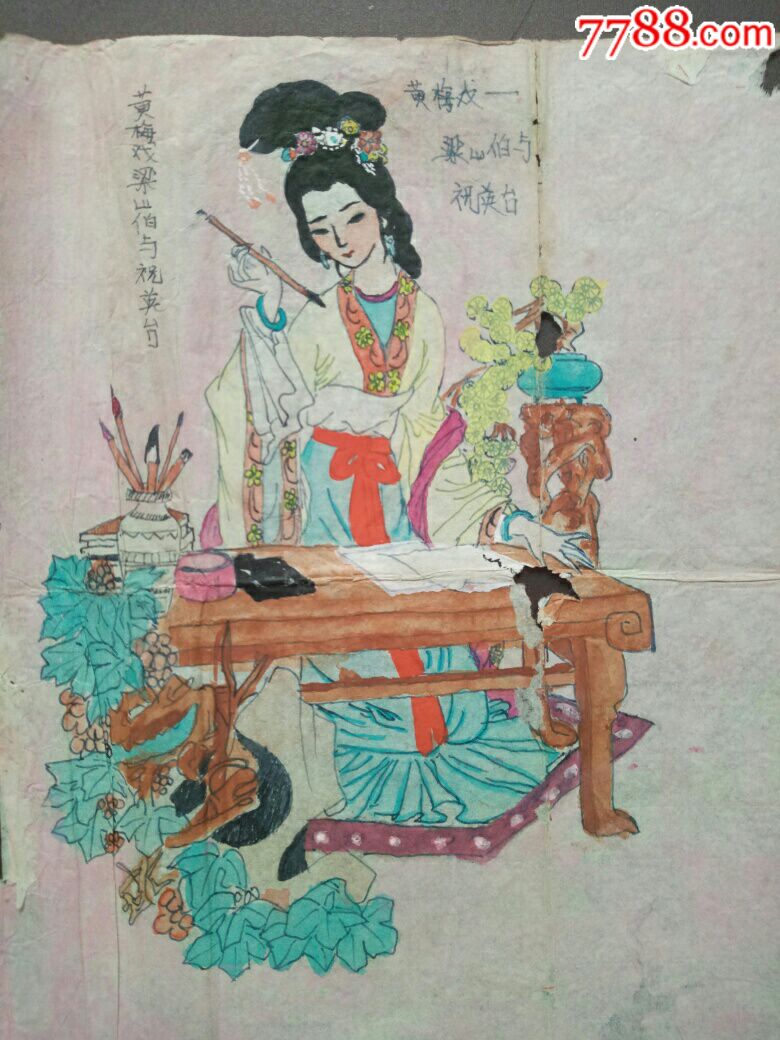 7788.com
黄梅戏一
梁山伯与
祝英台
黄梅戏梁山伯与祝英台